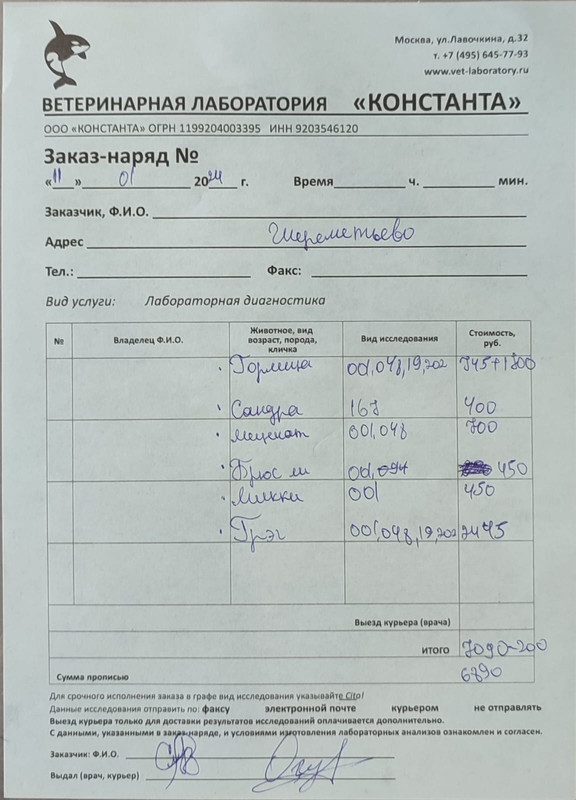 Москва, ул.Лавочкина, д.32
т. +7 (495) 645-77-93
www.vet-laboratory.ru
ВЕТЕРИНАРНАЯ ЛАБОРАТОРИЯ «КОНСТАНТА»
ООО «КОНСТАНТА» ОГРН 1199204003395 ИНН 9203546120
Заказ-наряд №
«11» 01 2024 г. Время ч. мин.
Заказчик, Ф.И.О.
Адрес Шереметьево
Тел.: Факс:
Вид услуги: Лабораторная диагностика
№ Владелец Ф.И.О. Животное, вид возраст, порода, кличка Вид исследования Стоимость, руб.
001,048,19,202 745+1800
Сандра 167 400
меценат 001,048 700
Брюс ли 001, 094 450
микки 001 450
Грэг 001,048,19,202 2445
Выезд курьера (врача)
итого 7090-200
Сумма прописью 6890
Для срочного исполнения заказа в графе вид исследования указывайте Cito!
Данные исследования отправить по: факсу электронной почте курьером не отправлять
Выезд курьера только для доставки результатов исследований оплачивается дополнительно.
С данными, указанными в заказ-наряде, и условиями изготовления лабораторных анализов ознакомлен и согласен.
Заказчик: Ф.И.О.
Выдал (врач, курьер)